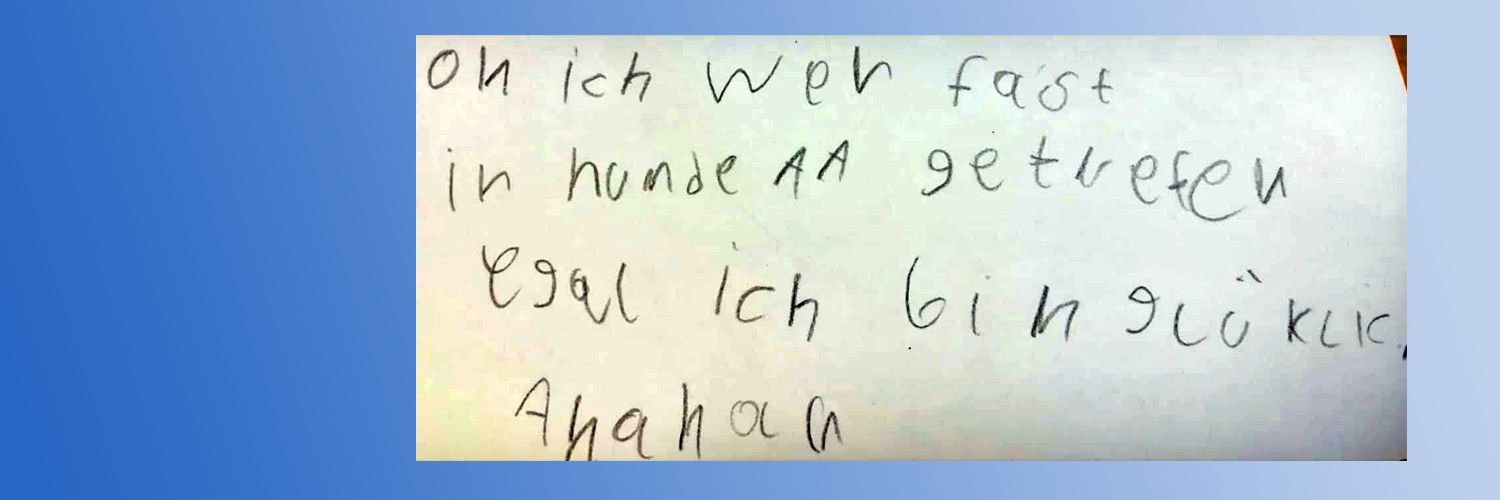 oh ich wer fast
in hunde AA getrefen
egal ich bin glüklic
Ahahah